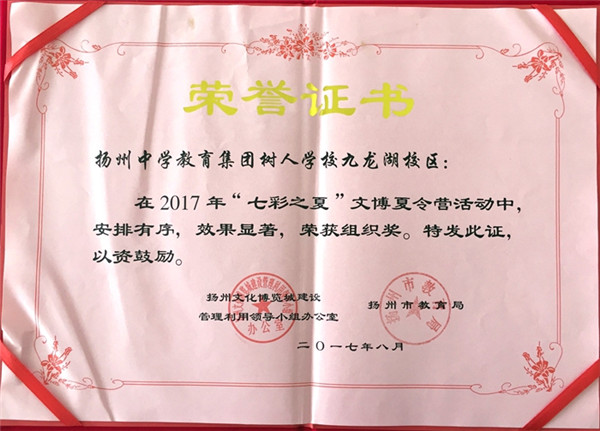 荣誉证书
扬州中学教育集团树人学校九龙湖校区：
在2017年“七彩之夏”文博夏令营活动中，
安排有序，效果显著，荣获组织奖。特发此证，
以资鼓励。
扬州文化博览城建设
管理利用领导小组办公室
扬州市教育局
办公室
扬州市教育局
二〇一七年八月